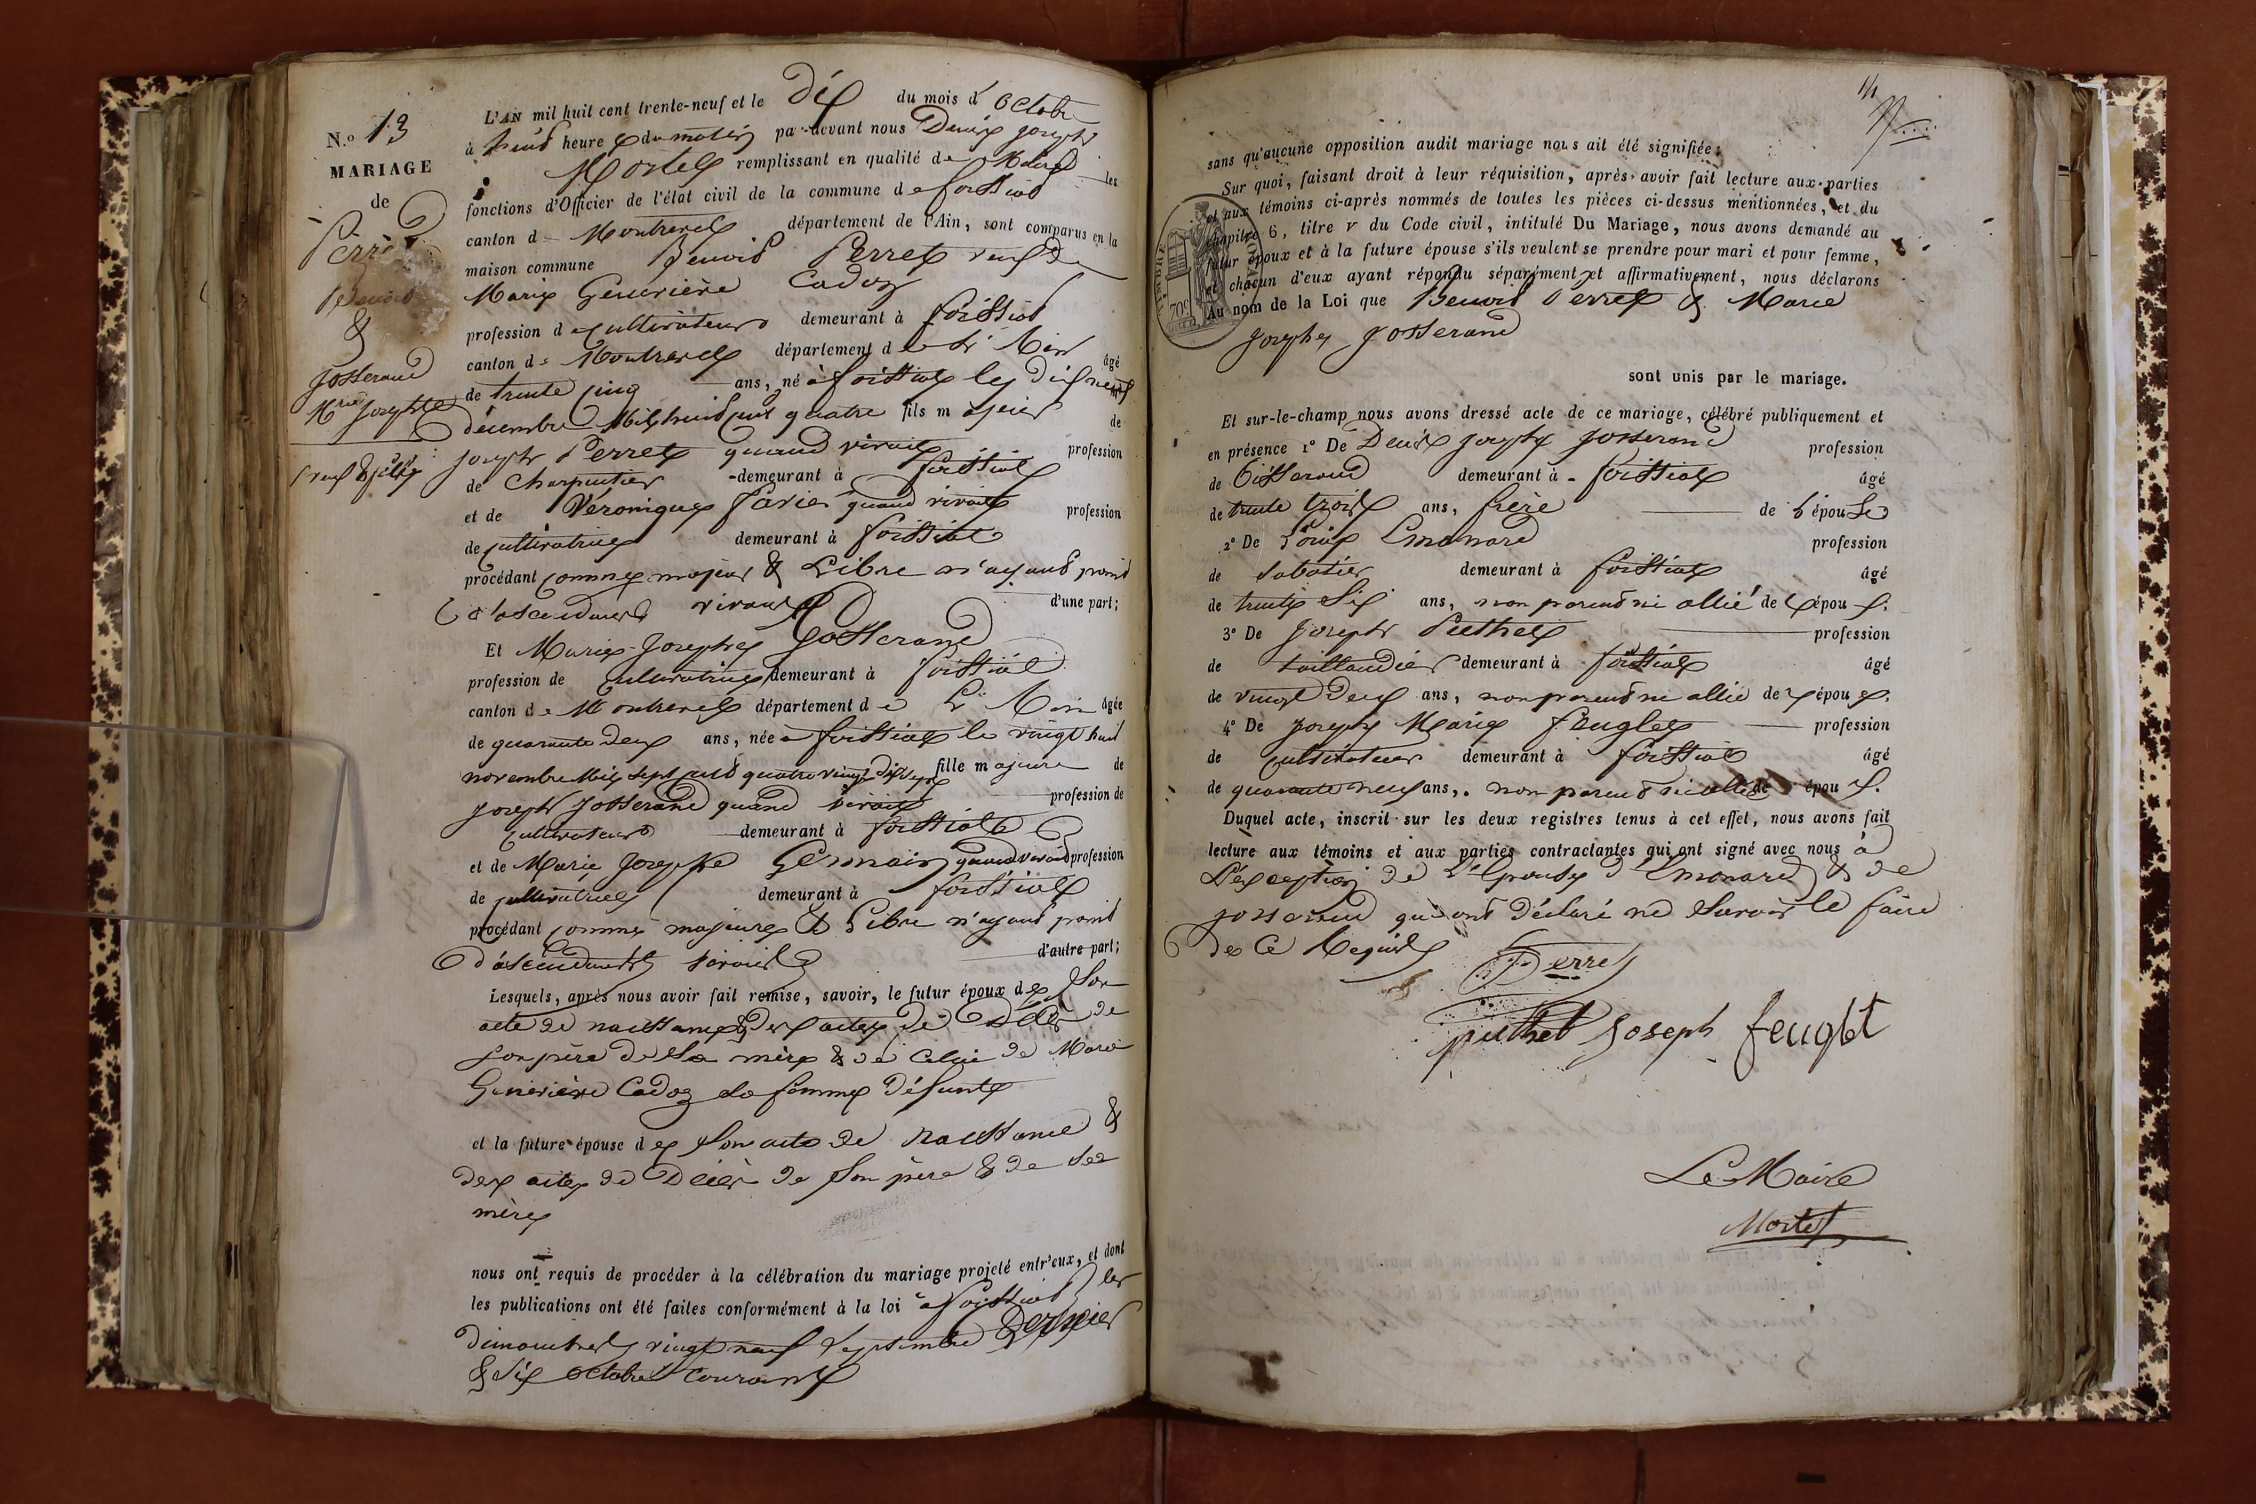 N.o 13
MARIAGE
de
Perret
Benoit
&
Josserand
Mrie Josephte
veuf & fille
L'AN mil huit cent trente-neuf et le dix du mois d'octobre
à heures du matin par-devant nous Denis Joseph
Mortel remplissant en qualité de Maire les
fonctions d'Officier de l'état civil de la commune de foissiat
canton de Montrevel département de l'Ain, sont comparus en la
maison commune Benoit Perret veuf de
Marie Genevière Cadoz
profession de cultivateur demeurant à foissiat
canton de Montrevel département de L'Ain âgé
de trente cinq ans, né à foissiat le dix neuf
décembre Mil huit cent quatre fils majeur de
Joseph Perret quand vivait profession
de Charpentier demeurant à foissiat
et de Véronique favier quand vivait profession
de cultivatrice demeurant à foissiat
procédant comme majeur & Libre n'ayant point
d'ascendants vivants d'une part;
Et Marie Josephe Josserand
profession de cultivatrice demeurant à foissiat
canton de Montrevel département de L'Ain âgée
de quarante deux ans, née à foissiat le vingt huit
novembre Mil sept cent quatre vingt dix sept fille majeure de
Joseph Josserand quand vivait profession de
cultivateur demeurant à foissiat
et de Marie Josephe Germain quand vivait profession
de cultivatrice demeurant à foissiat
procédant comme majeure & Libre n'ayant point
d'ascendants vivants d'autre part;
Lesquels, après nous avoir fait remise, savoir, le futur époux de Son
acte de naissance & des actes de Décès de
son père de sa mère & de celui de Marie
Genevière Cadoz sa femme défunte
et la future épouse de Son acte de naissance &
des actes de Décès de son père & de sa
mère
nous ont requis de procéder à la célébration du mariage projeté entr'eux, et dont
les publications ont été faites conformément à la loi à foissiat les
dimanches vingt neuf septembre Dernier
& six octobre courant
sans qu'aucune opposition audit mariage nous ait été signifiée;
Sur quoi, faisant droit à leur réquisition, après avoir fait lecture aux parties
et aux témoins ci-après nommés de toutes les pièces ci-dessus mentionnées, et du
chapitre 6, titre v du Code civil, intitulé Du Mariage, nous avons demandé au
futur époux et à la future épouse s'ils veulent se prendre pour mari et pour femme,
et chacun d'eux ayant répondu séparément et affirmativement, nous déclarons
Au nom de la Loi que Benoit Perret & Marie
Josephe Josserand
sont unis par le mariage.
Et sur-le-champ nous avons dressé acte de ce mariage, célébré publiquement et
en présence 1° De Denis Joseph Josserand profession
de Tisserand demeurant à foissiat âgé
de trente trois ans, frère de l'épouse
2° De Louis Emonard profession
de sabotier demeurant à foissiat âgé
de trente six ans, non parent ni allié des époux.
3° De Joseph Puthet profession
de taillandier demeurant à foissiat âgé
de vingt deux ans, non parent ni allié des époux.
4° De Joseph Marie feuglet profession
de cultivateur demeurant à foissiat âgé
de quarante neuf ans, non parent ni allié des époux.
Duquel acte, inscrit sur les deux registres tenus à cet effet, nous avons fait
lecture aux témoins et aux parties contractantes qui ont signé avec nous à
L'exception de L'Epouse d'Emonard & de
josserand qui ont déclaré ne savoir le faire
de ce Requis
Perret
puthet Joseph feuglet
Le Maire
Mortel